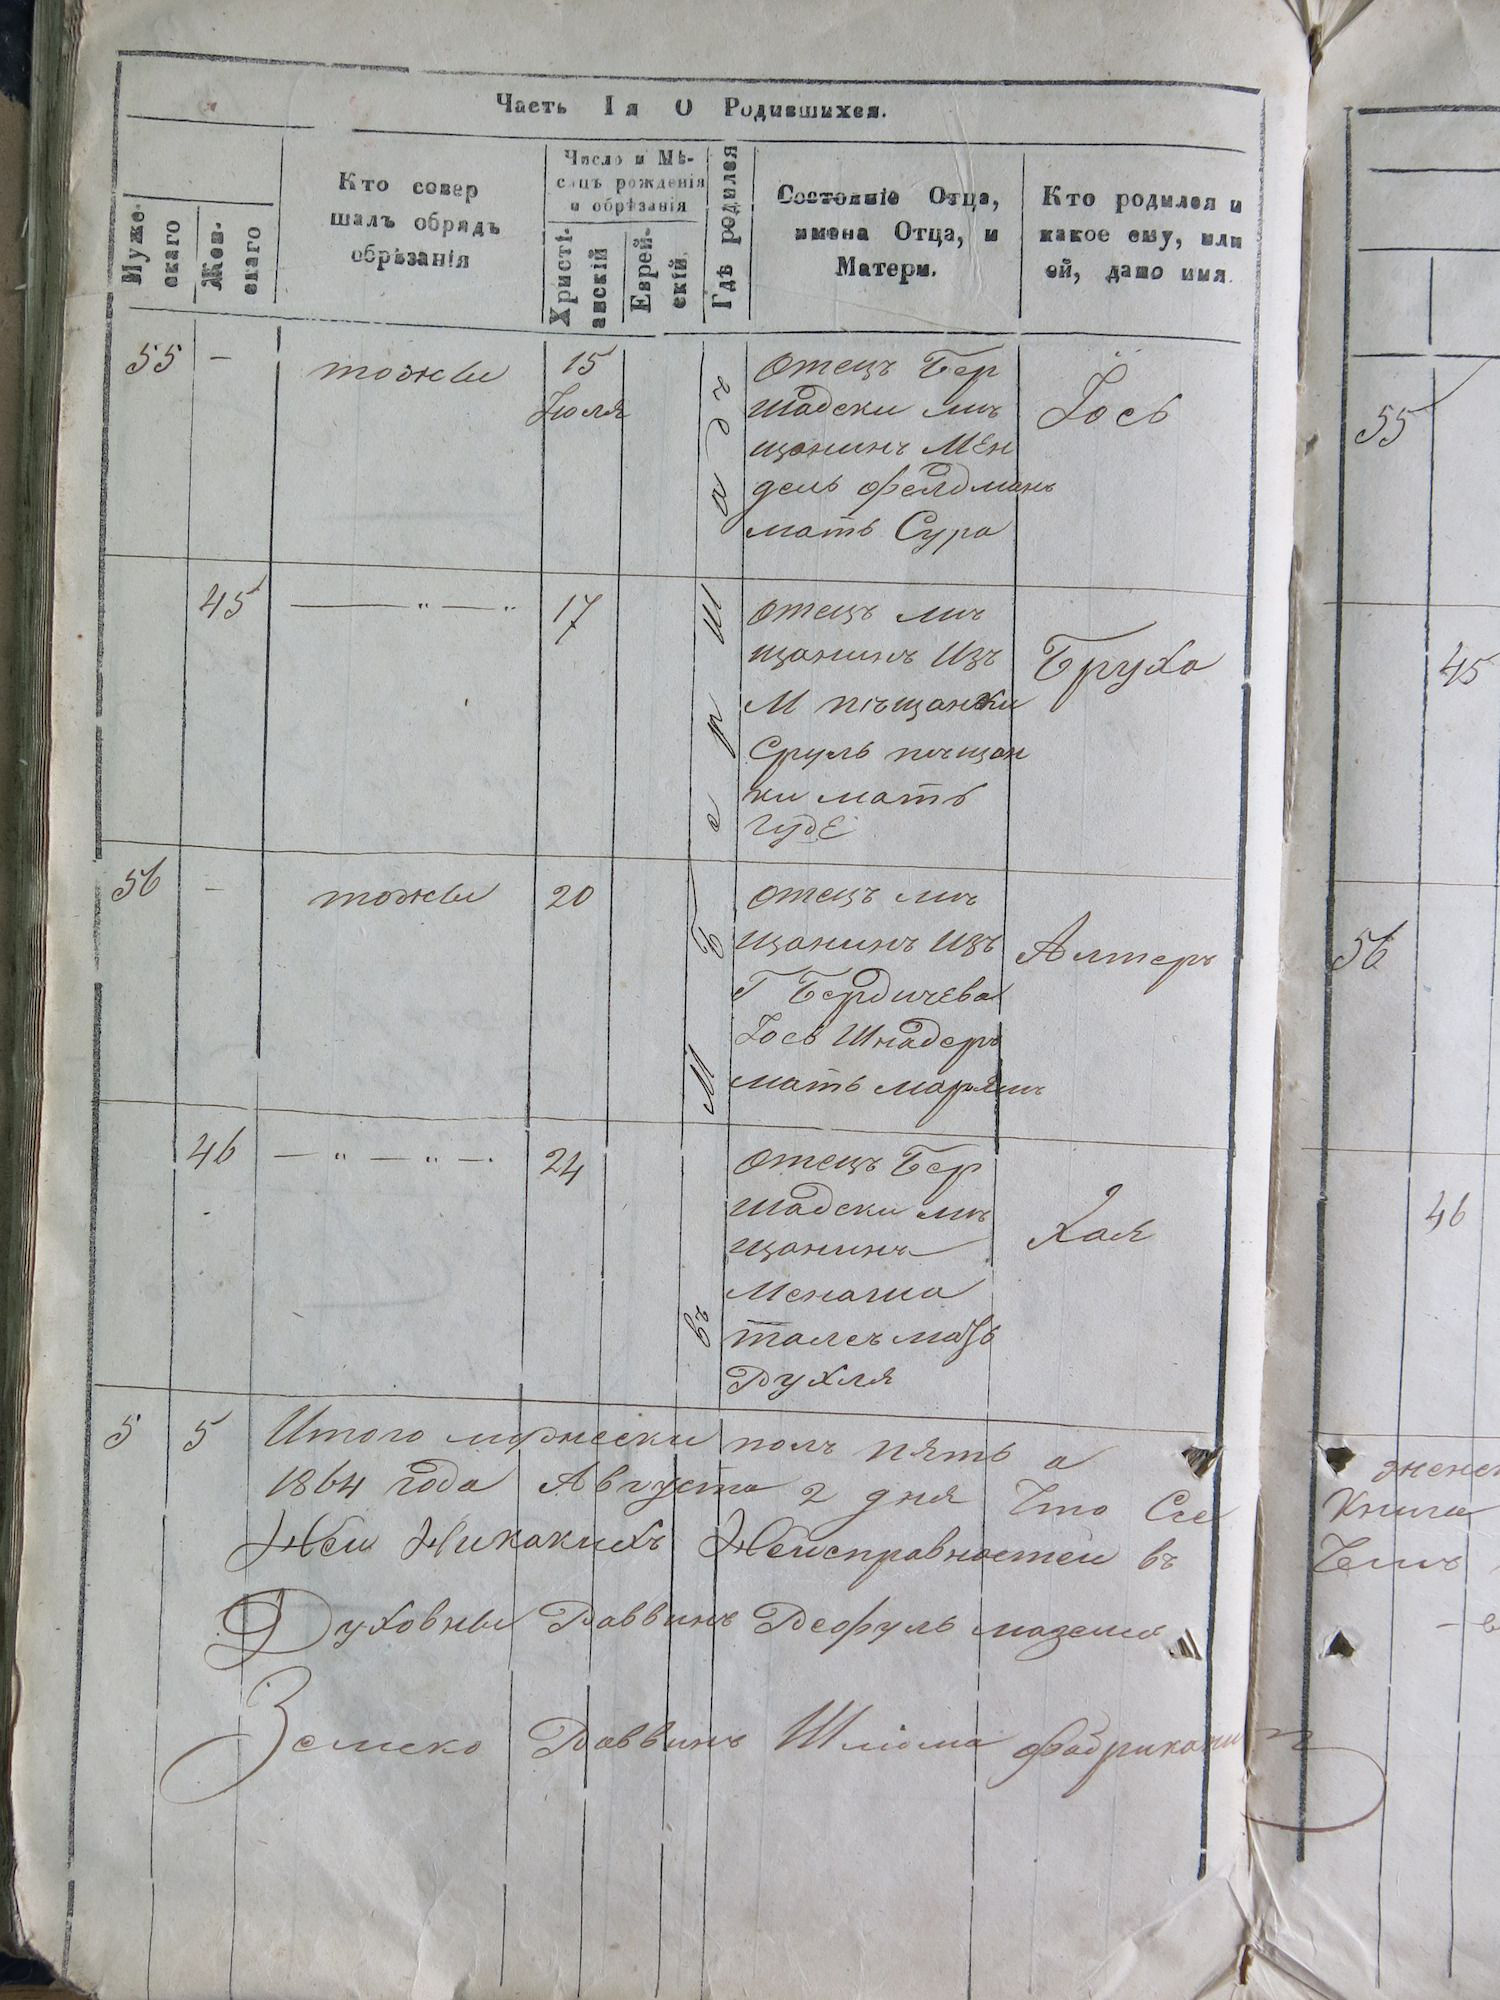 Часть Iя О Родившихся.
Муже-
скаго
Жен-
скаго
Кто совер
шалъ обрядъ
обрѣзанія
Число и Мѣ-
сяцъ рожденія
и обрѣзанія
Христі-
анскій
Еврей-
скій
Гдѣ родился
Состояніе Отца,
имена Отца, и
Матери.
Кто родился и
какое ему, или
ей, дано имя.
55 — тожъи 15
Іюля
отецъ Бер
шадски мѣ
щанинъ Мен
дель Фелдманъ
мать Сура
Іось
45 — " — " 17
отецъ мѣ
щанинъ Изъ
М пѣщанки
Сруль пѣщан
ки мать
Гуде
Бруха
56 — тожъи 20
отецъ мѣ
щанинъ Изъ
Г Бердичева
Іось Шнадеръ
мать маръямъ
Алтеръ
46 — " — " —. 24
отецъ Бер
шадски мѣ
щанинъ
Менаша
талесъ мать
Рухля
Хая
въ М Бершадъ
5 5 Итого мужески полъ пять а
1864 года Августа 2 дня Что Сее
Ней Никакихъ Неисправностей въ
Духовны Раввинъ Рефуль
Земско Раввинъ Шлиома Фабрикантъ
55
45
56
46
женс
Книга
Чемъ